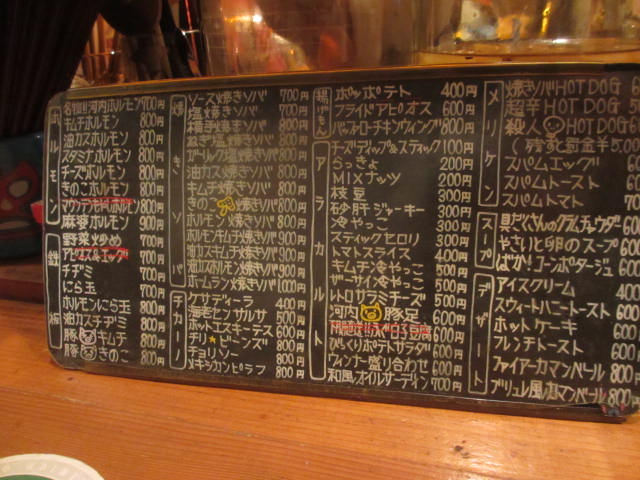 ホルモン
名物!!河内ホルモン 700円
キムチホルモン 800円
油カスホルモン 800円
スタミナホルモン 800円
チーズホルモン 800円
きのこホルモン 800円
マウンテンモトホルモン 800円
麻婆ホルモン 900円
鉄板
野菜炒め 700円
アピオス&エッグ 700円
チヂミ 700円
にら玉 700円
ホルモンにら玉 800円
油カスチヂミ 800円
豚キムチ 800円
豚きのこ 800円
焼きソバ
ソース焼きソバ 700円
塩焼きソバ 700円
梅じそ焼きソバ 800円
ねぎ塩焼きソバ 800円
ガーリック塩焼きソバ 800円
油カス焼きソバ 800円
キムチ焼きソバ 800円
きのこ焼きソバ 800円
ホルモン焼きソバ 900円
ホルモンキムチ焼きソバ
油カスキムチ焼きソバ 900円
油カスホルモン焼きソバ
ホームラン焼きソバ 1000円
チカーノ
ケサディーラ 400円
海老センサルサ 500円
ホットエスキーテス 600円
チリ★ビーンズ 700円
チョリソー 800円
メキシカンピラフ 800円
揚げもん
ポッポテト 400円
フライドアピオス 600円
バッファローチキンウィング 800円
アラカルト
チーズディップ&スティック 100円
らっきょ 200円
MIXナッツ 200円
枝豆 300円
砂肝ジャーキー 300円
冷やっこ 300円
スティックセロリ 300円
トマトスライス 400円
キムチン冷やっこ 500円
ザーサイ冷やっこ 500円
レトロサラミチーズ 500円
河内豚足 600円
びっくりポテトサラダ 600円
ウィンナー盛り合わせ 600円
和風オイルサーディン 700円
メリケン
焼きソバHOT DOG
超辛HOT DOG
殺人HOT DOG
スパムエッグ
スパムトースト
スパムトマト
スープ
具だくさんのクラムチャウダー
やさいと卵のスープ
ばか!コーンポタージュ
デザート
アイスクリーム
スウィートハニートースト
ホットケーキ
フレンチトースト
ファイアーカマンベール
ブリュレ風カマンベール